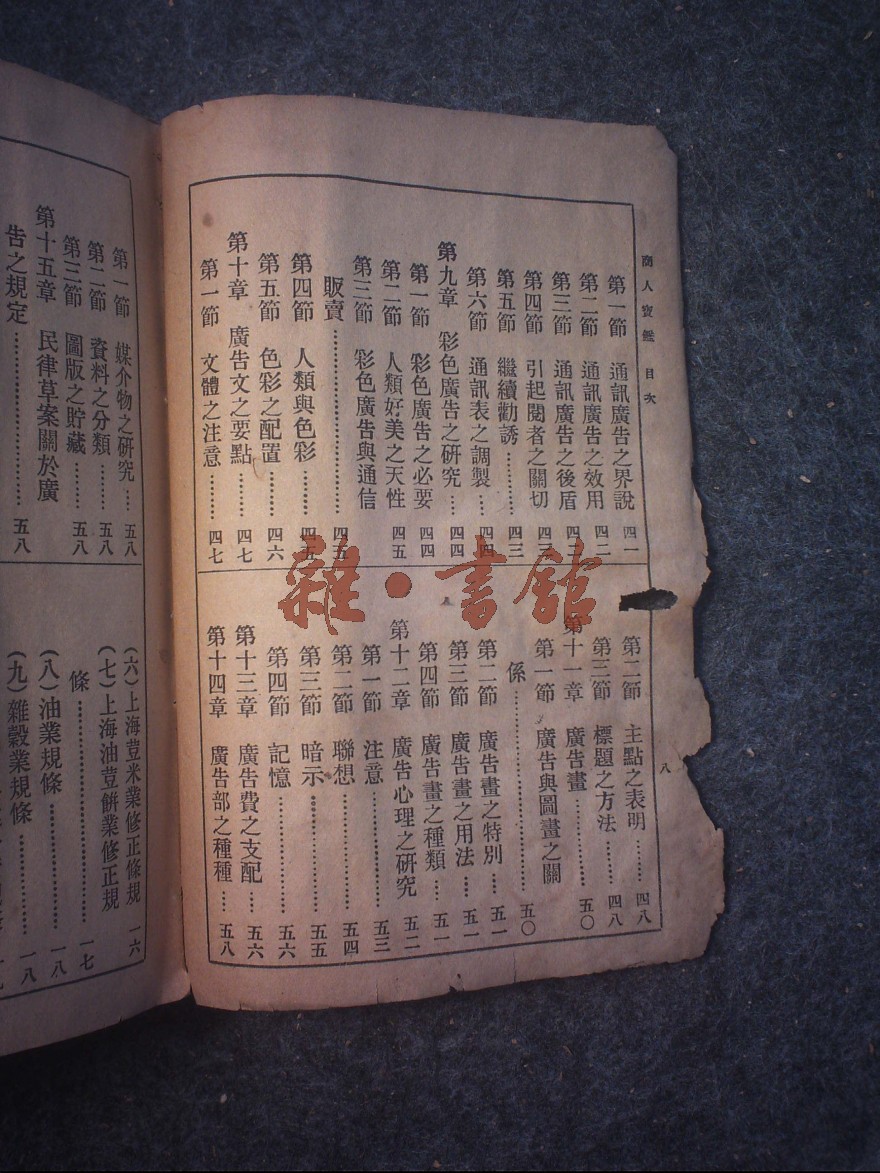 商人寶鑑 目次
八
第一節 通訊廣告之界說 四一
第二節 通訊廣告之效用 四二
第三節 通訊廣告之後盾
第四節 引起閱者之關切
第五節 繼續勸誘………四三
第六節 通訊表之調製…
第九章 彩色廣告之研究…四四
第一節 彩色廣告之必要 四四
第二節 人類好美之天性 四五
第三節 彩色廣告與通信
販賣………四五
第四節 人類與色彩………
第五節 色彩之配置………四六
第十章 廣告文之要點……四七
第一節 文體之注意………四七
第二節 主點之表明………四八
第三節 標題之方法………四八
第十一章 廣告畫…………五〇
第一節 廣告與圖畫之關
係…………五〇
第二節 廣告畫之特別…五一
第三節 廣告畫之用法…五一
第四節 廣告畫之種類…五一
第十二章 廣告心理之研究 五二
第一節 注意…………五三
第二節 聯想…………五四
第三節 暗示…………五五
第四節 記憶…………五六
第十三章 廣告費之支配…五六
第十四章 廣告部之種種…五八
第一節 媒介物之研究…五八
第二節 資料之分類……五八
第三節 圖版之貯藏……五八
第十五章 民律草案關於廣
告之規定…………五八
(六)上海荳米業修正條規 一六
(七)上海油荳餅業修正規
條…………一七
(八)油業規條…………一八
(九)雜穀業規條…………一八
雜·書館